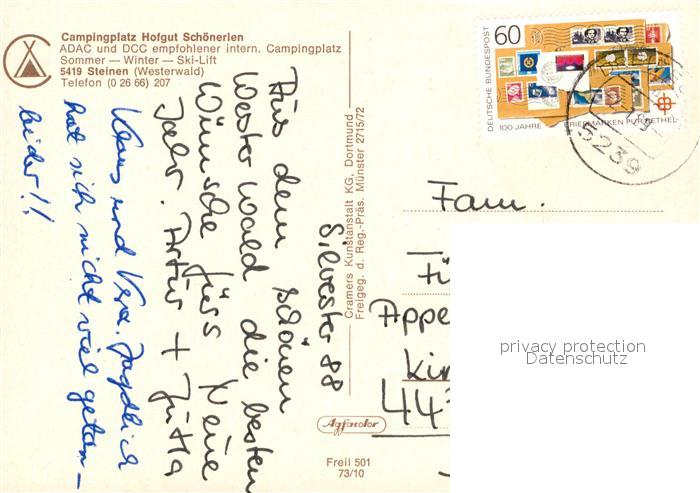 Campingplatz Hofgut Schönerlen
ADAC und DCC empfohlener intern. Campingplatz
Sommer — Winter — Ski-Lift
5419 Steinen (Westerwald)
Telefon (0 26 66) 207
Silvester 88
Aus dem schönen
Westerwald die besten
Wünsche fürs Neue
Jahr. Artur + Jutta
Klaus und Vera. Jagdlich
hat sich nicht viel getan –
leider!!
Cramers Kunstanstalt KG, Dortmund
Freigeg. d. Reg.-Präs. Münster 2715/72
Agfacolor
Freil 501
73/10
60
DEUTSCHE BUNDESPOST
100 JAHRE BRIEFMARKEN FÜR BETHEL
5239
Fam.
Appe
Kir
443
privacy protection
Datenschutz